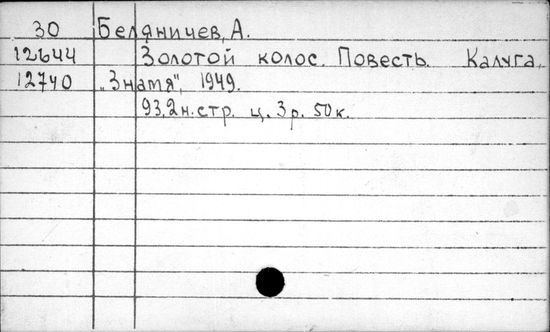 30 Беляничев, А.
12644 Золотой колос. Повесть. Калуга.
12740 „Знамя", 1949.
93,2н.стр. ц. 3р. 50к.